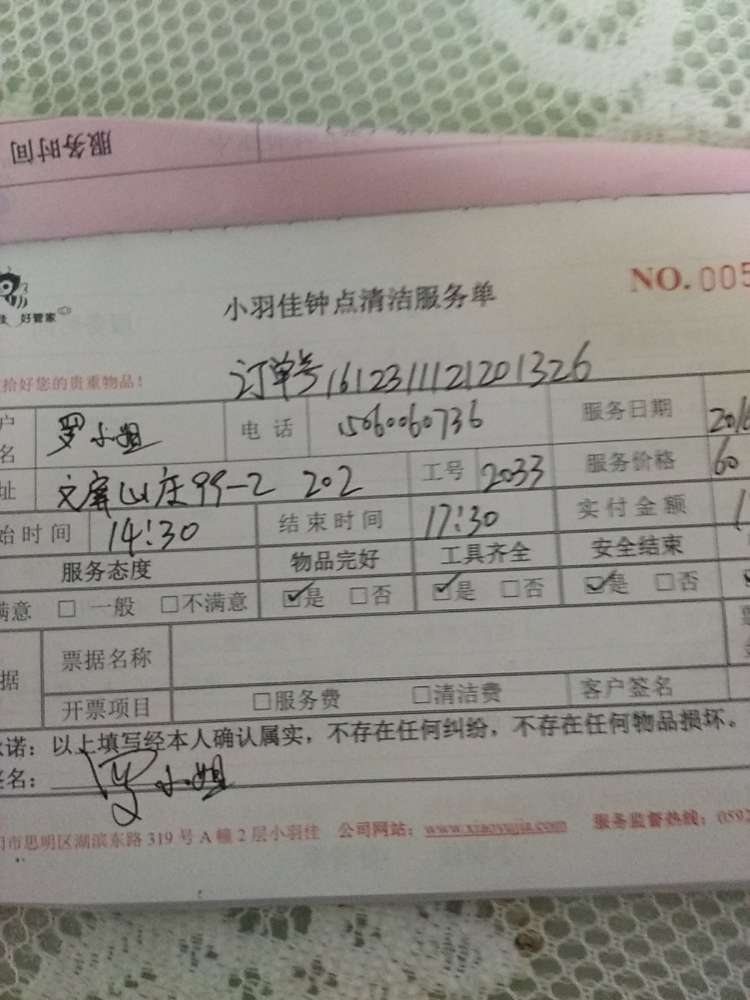 服务时间
佳 好管家
小羽佳钟点清洁服务单
NO.005
拾好您的贵重物品!
订单号1612311121201326
户名 罗小姐 电话 15060060736 服务日期 2016
址 文屏山庄99-2 202 工号 2033 服务价格 60
始时间 14:30 结束时间 17:30 实付金额 1
服务态度 物品完好 工具齐全 安全结束
满意 □ 一般 □不满意 ☑是 □否 ☑是 □否 ☑是 □否
据 票据名称
开票项目 □服务费 □清洁费 客户签名
诺：以上填写经本人确认属实，不存在任何纠纷，不存在任何物品损坏。
签名： 罗小姐
门市思明区湖滨东路 319 号 A 幢 2 层小羽佳 公司网站：www.xiaoyujia.com 服务监督热线：0592